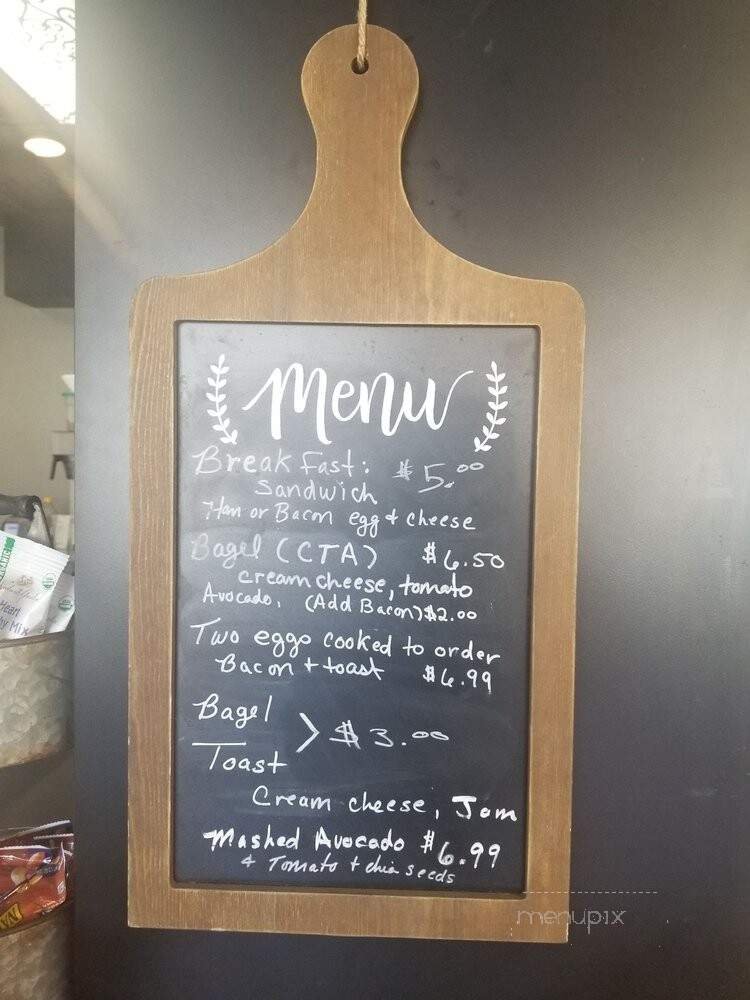 Menu
Breakfast: $5.00
Sandwich
Ham or Bacon egg & cheese
Bagel (CTA) $6.50
cream cheese, tomato
Avocado, (Add Bacon) $2.00
Two eggs cooked to order
Bacon + toast $6.99
Bagel
> $3.00
Toast
Cream cheese, Jam
Mashed Avocado $6.99
& Tomato + chia seeds
menupix
ORGANIC